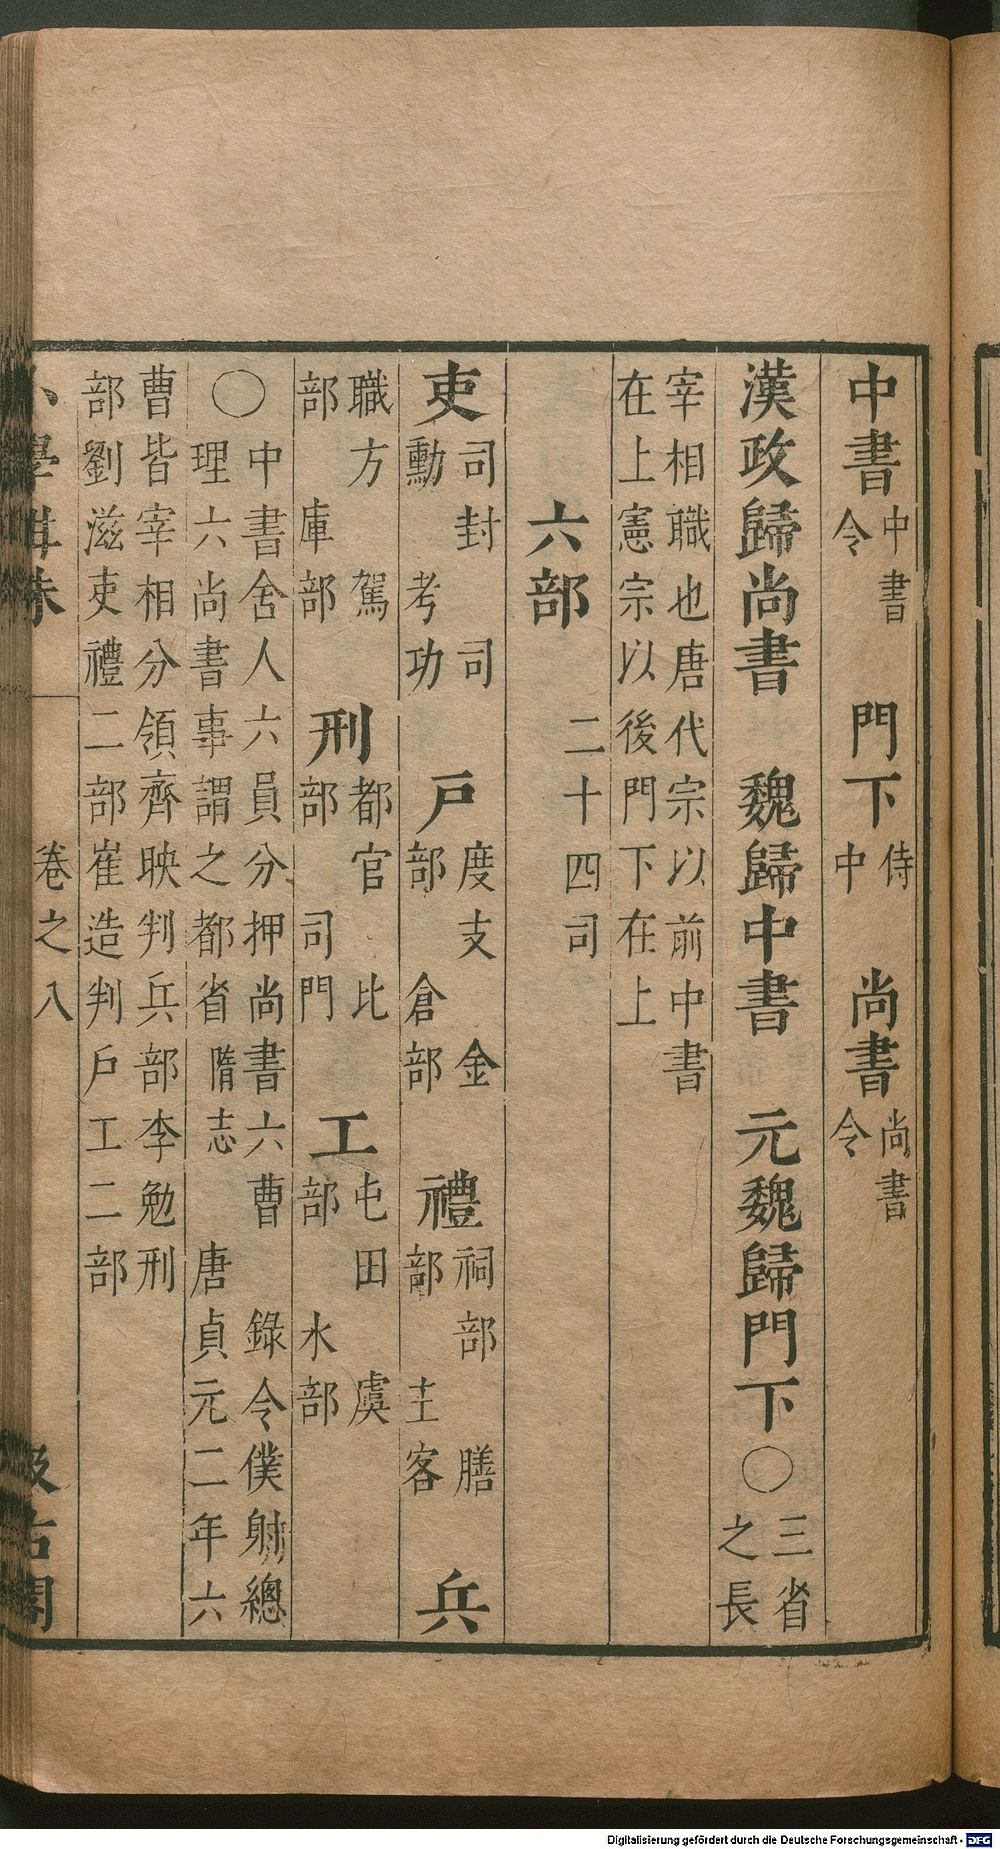 中書中書令 門下侍中 尚書尚書令
漢政歸尚書 魏歸中書 元魏歸門下〇三省之長
宰相職也唐代宗以前中書
在上憲宗以後門下在上
六部 二十四司
吏司封 司勳 考功 戶度支 金部 倉部 禮祠部 膳部 主客 兵
職方 駕部 庫部 刑都官 比部 司門 工屯田 虞部 水部
〇中書舍人六員分押尚書六曹 錄令僕射總
理六尚書事謂之都省隋志 唐貞元二年六
曹皆宰相分領齊映判兵部李勉刑
部劉滋吏禮二部崔造判戶工二部
卷之八
Digitalisierung gefördert durch die Deutsche Forschungsgemeinschaft - DFG